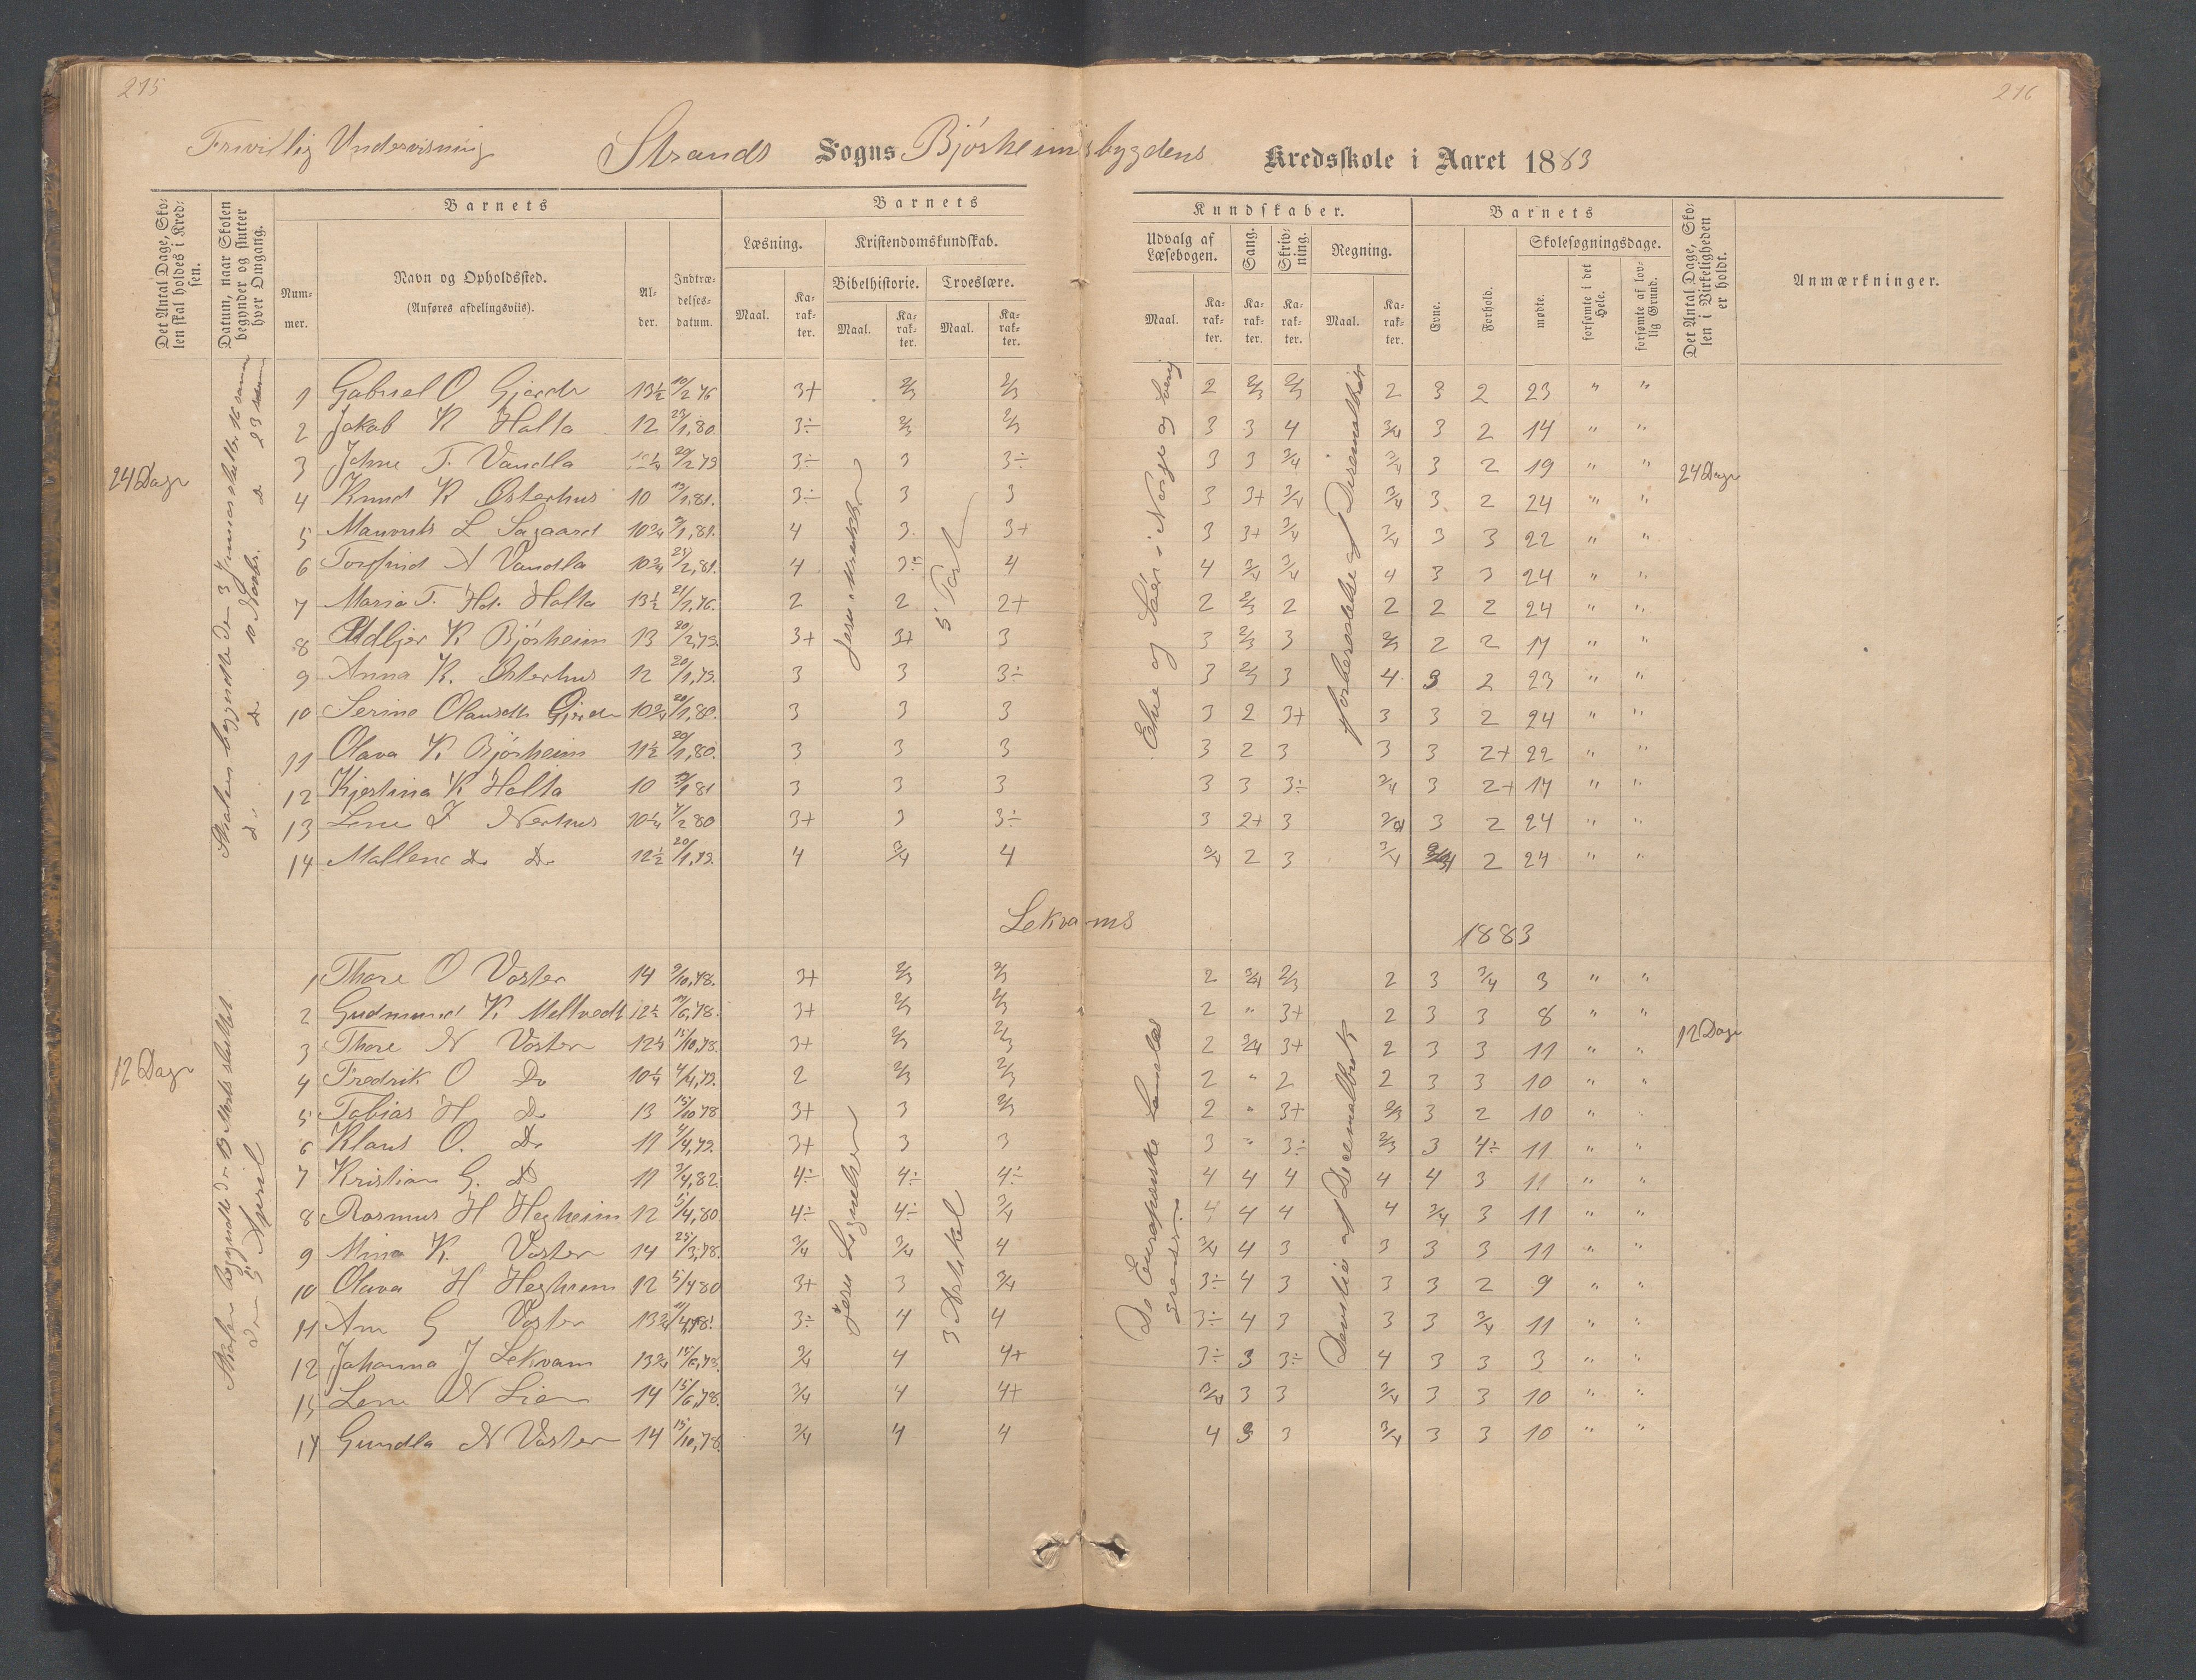 215
216
Frivillig Undervisning Strands Sogns Bjørheimsbygdens Kredsskole i Aaret 1883
Det Antal Dage, Skolen skal holdes i Kredsen.
Datum, naar Skolen begynder og slutter hver Omgang.
Barnets
Nummer.
Navn og Opholdssted.
(Anføres afdelingsviis).
Alder.
Indtrædelsesdatum.
Barnets
Læsning.
Maal.
Karakter.
Kristendomskundskab.
Bibelhistorie.
Maal.
Karakter.
Troeslære.
Maal.
Karakter.
Kundskaber.
Udvalg af Læsebogen.
Maal.
Karakter.
Sang.
Karakter.
Skrivning.
Karakter.
Regning.
Maal.
Karakter.
Barnets
Evne.
Forhold.
Skolesøgningsdage.
mødte.
forsømte i det Hele.
forsømte af lovlig Grund.
Det Antal Dage, Skolen i Virkeligheden er holdt.
Anmærkninger.
24 Dage
24 Dage
1 Gabriel O Gjerde 13½ 10/2 76 3+ 2/3 2/3 2 2/3 2/3 2 3 2 23 " "
2 Jakob K Holta 12 23/1,80. 3÷ 2/3 2/3 3 3 4 3/4 3 2 14 " "
3 Johne T. Vandla 20/2 79 3÷ 3 3÷ 3 3 3/4 3/4 3 2 19 " "
4 Knud K Østerhus 10 13/1,81. 3÷ 3 3 3 3+ 3/4 3/4 3 2 24 " "
5 L Sagaard 10¾ 1,81. 4 3. 3+ 3 3+ 3/4 3/4 3 3 22 " "
6 Torfind A Vandla 10¾ 21/2,81. 4 3÷ 4 4 3/4 3/4 4 3 3 24 " "
7 Maria T. Holta 13½ 21/1,76. 2 2 2+ 2 2/3 2 2 2 2 24 " "
8 K Bjørheim 13 20/2,79. 3+ 3+ 3 3 2/3 3 2/3 2 2 17 " "
9 Anna K. Østerhus 12 20/1,79. 3 3 3÷ 3 2/3 3 4 3 2 23 " "
10 Serine Gjerde 10¾ 20/1,80. 3 3 3 3 2 3+ 3 3 2 24 " "
11 Olava K. Bjørheim 11½ 20/1,80. 3 3 3 3 2 3 3 3 2+ 22 " "
12 Kjestina K Holta 10 1 81 3 3 3 3 3 3÷ 3/4 3 2+ 17 " "
13 Lene T Nerhus 10¼ 4/2 80 3+ 3 3÷ 3 2+ 3 3/4 3 2 24 " "
14 Mallene Do Do 12½ 20/1,79. 4 3/4 4 3/4 2 3 3/4 2 24 " "
5 Part
Lekvams 1883
12 Dage
12 Dage
1 Thore O Voster 14 9/10,78. 3+ 2/3 2/3 2 3/4 2/3 2 3 3/4 3 " "
2 Gudmund K Meltvedt 12½ 6,78. 3+ 2/3 2/3 2 " 3+ 2 3 3 8 " "
3 Thore N Voster 12¾ 15/10,78. 3+ 2/3 2/3 2 3/4 3+ 2 3 3 11 " "
4 Fredrik O Do 10¼ 4/4,79. 2 2/3 2/3 2 " 2 2 3 3 10 " "
5 Tobias H. Do 13 15/10 78 3+ 3 2/3 2 " 3+ 2/3 3 2 10 "
6 Klaus O. Do 11 4/4,79. 3+ 3 3 3 " 3÷ 2/3 3 4÷ 11 " "
7 Kristian G. Do 11 3/4,82. 4÷ 4÷ 4÷ 4 4 4 4 4 3 11 " "
8 Rasmus H Hegheim 12 5/4,80 4÷ 4÷ 3/4 4 4 4 4 3/4 3 11 " "
9 Mina K. Voster 14 25/3,78. 3/4 3/4 4 3/4 4 3 3 3 3 11 " "
10 Olava H Hegheim 12 5/4 80 3+ 3 3/4 3÷ 4 3 3 3 2 9 " "
11 Ane G Voster 13¾ 3÷ 4 4 3÷ 4 3 3 3 3/4 11 " "
12 Johanna J Lekvam 13¾ 15/6,78. 3/4 4 4+ 3÷ 3 3÷ 4 3 3 3 " "
13 Lene N Lien 14 15/6,78. 3/4 4 4+ 3/4 3 3 3/4 3 3 10 " "
14 Gundla N Voster 14 15/10,78. 3/4 4 4 4 3 3 3/4 3 3 10 " "
3 Artikel